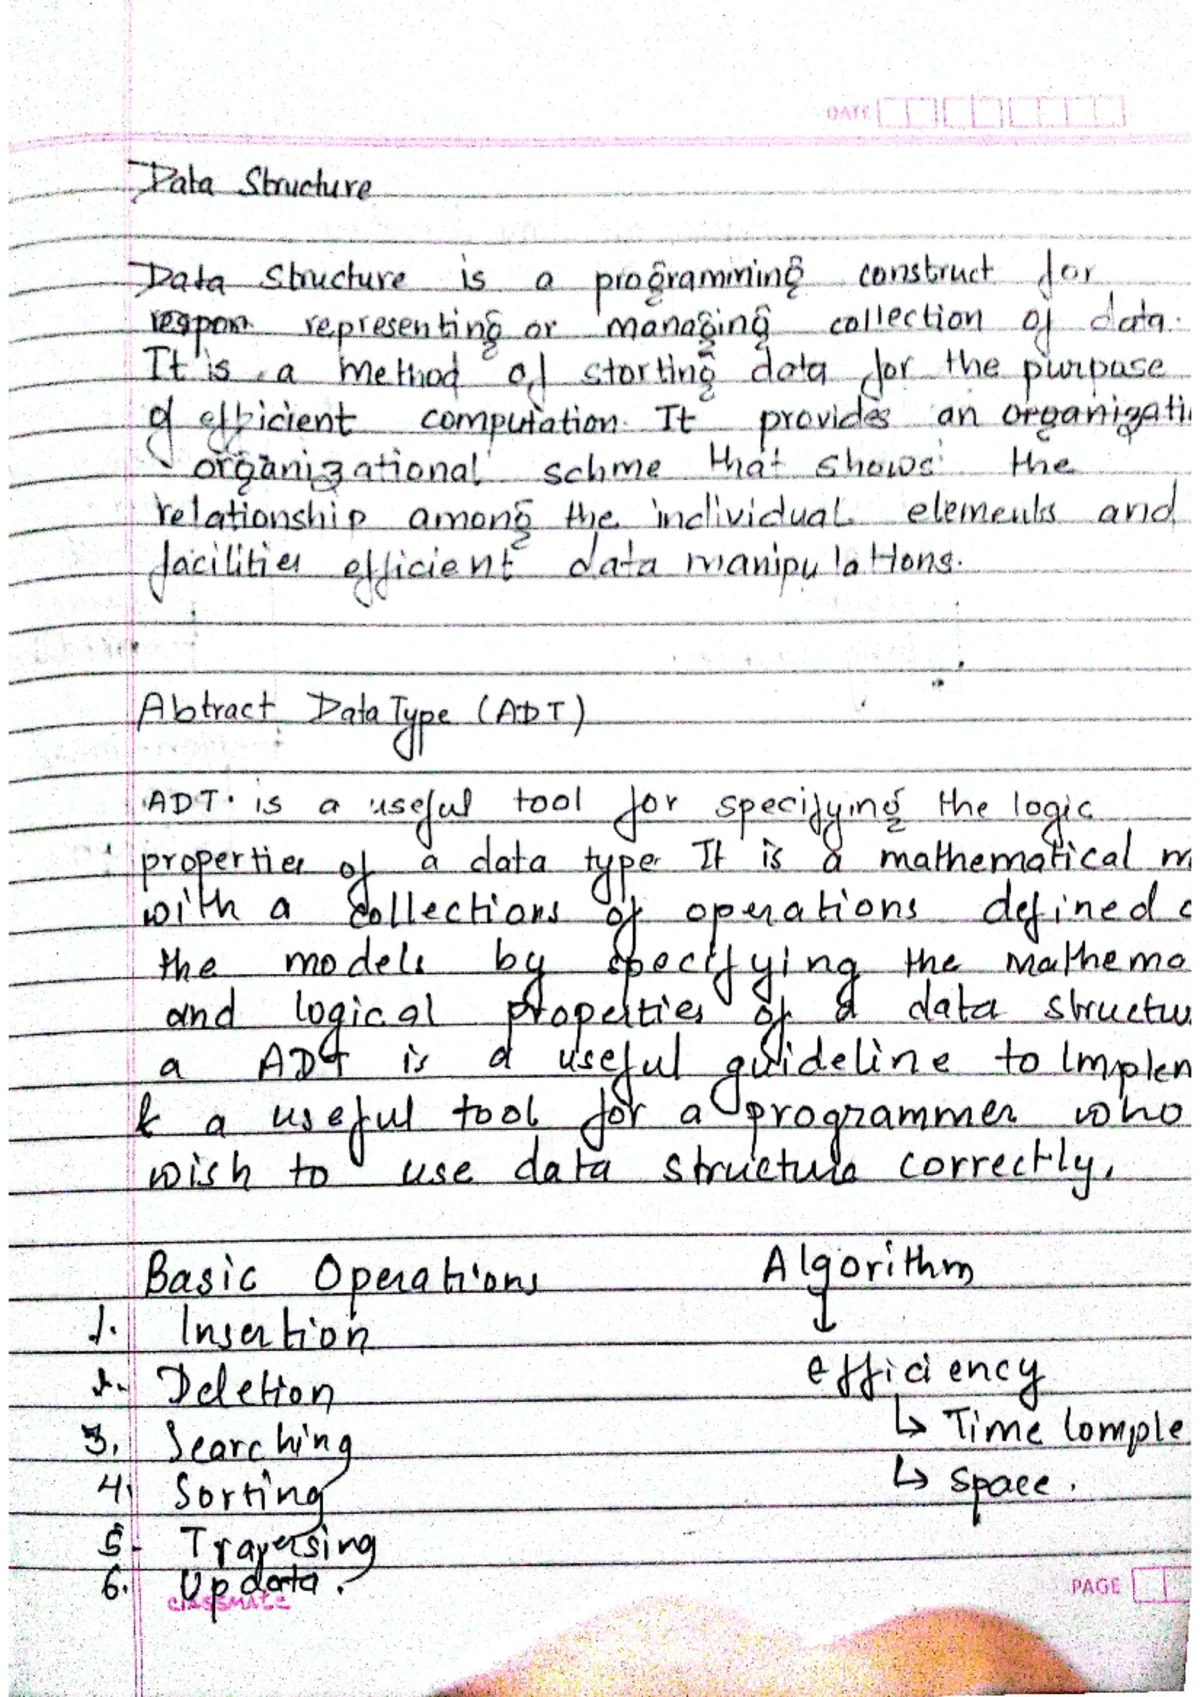 DATE
Data Structure
Data Structure is a programming construct for
representing or managing collection of data.
It is a method of storting data for the purpase
of efficient computation. It provides an organizati
organizational schme that shows the
relationship among the individual elements and
facilities efficient data manipulations.
Abtract Data Type (ADT)
ADT. is a useful tool for specifying the logic
properties of a data type. It is a mathematical m
with a collections of operations defined o
the models by specifying the mathema
and logical properties of a data structu
a ADT is a useful guideline to Implem
& a useful tool for a programmer who
wish to use data structure correctly.
Basic Operations Algorithm
↓
1. Insertion
2. Deletion efficiency
3. Searching ↳ Time Comple
4. Sorting ↳ space.
5. Traversing
6. Updata.
classmate PAGE